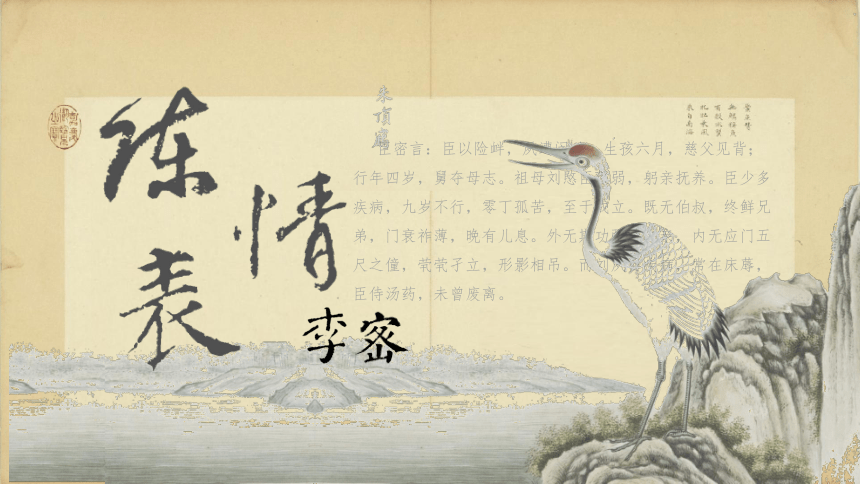 陈情表
李密
朱顶鹤
臣密言：臣以险衅，夙遭闵 生孩六月，慈父见背；
行年四岁，舅夺母志。祖母刘愍臣孤弱，躬亲抚养。臣少多
疾病，九岁不行，零丁孤苦，至于成立。既无伯叔，终鲜兄
弟，门衰祚薄，晚有儿息。外无期功 内无应门五
尺之僮，茕茕孑立，形影相吊。而刘夙 疾病，常在床蓐，
臣侍汤药，未曾废离。